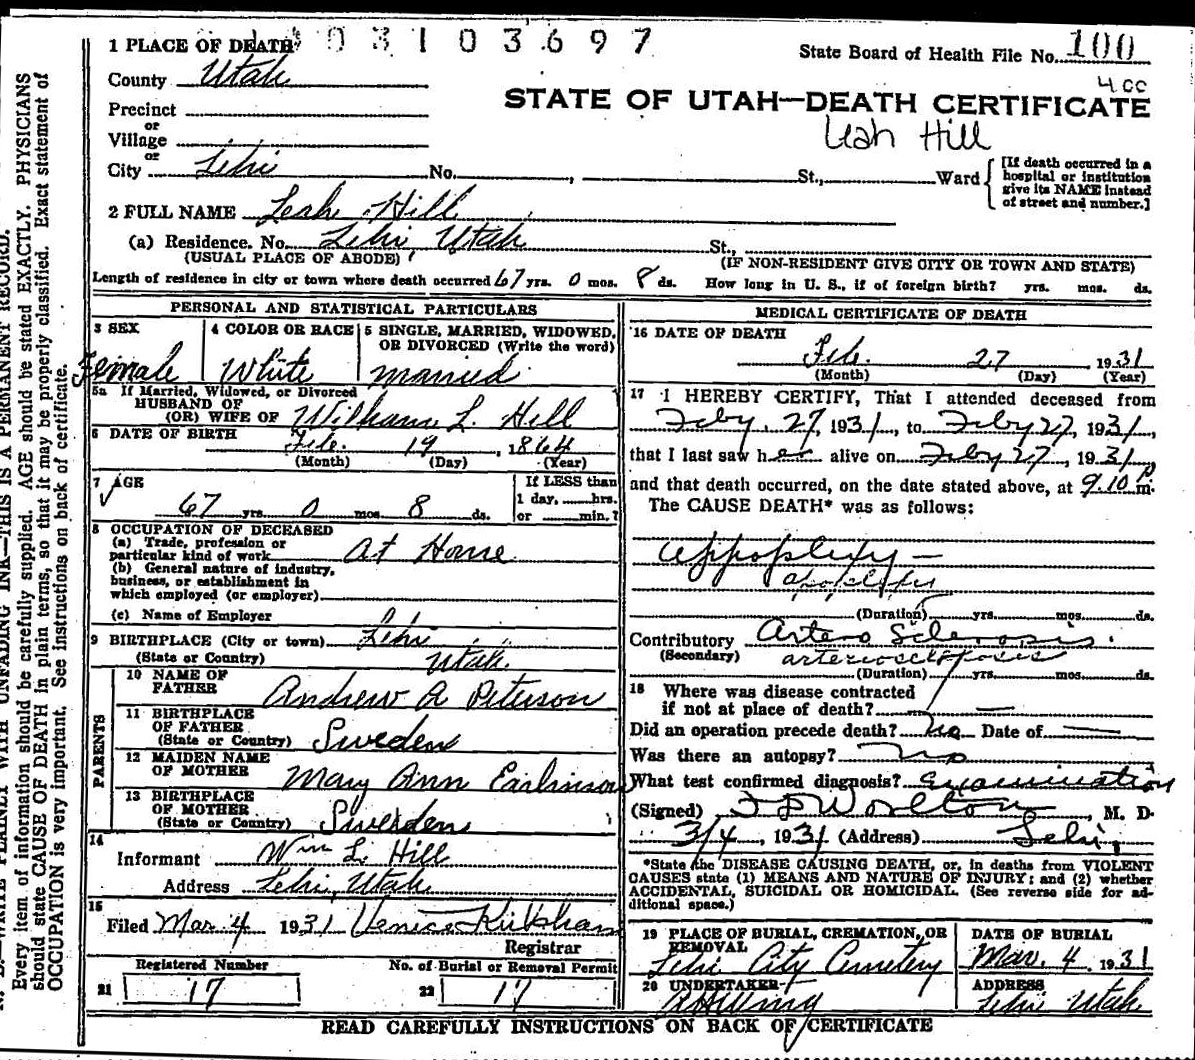 1 PLACE OF DEATH 0 3 1 0 3 6 9 7
State Board of Health File No. 100
County Utah
4 cc
STATE OF UTAH—DEATH CERTIFICATE
Precinct
or
Village
Leah Hill
or
City Lehi No. , St., Ward
[If death occurred in a
hospital or institution
give its NAME instead
of street and number.]
2 FULL NAME Leah Hill
(a) Residence. No. Lehi, Utah St.,
(USUAL PLACE OF ABODE) (IF NON-RESIDENT GIVE CITY OR TOWN AND STATE)
Length of residence in city or town where death occurred 67 yrs. 0 mos. 8 ds. How long in U. S., if of foreign birth? yrs. mos. ds.
PERSONAL AND STATISTICAL PARTICULARS
3 SEX 4 COLOR OR RACE 5 SINGLE, MARRIED, WIDOWED,
OR DIVORCED (Write the word)
Female White Married
5a If Married, Widowed, or Divorced
HUSBAND OF
(OR) WIFE OF William L. Hill
6 DATE OF BIRTH Feb. 19, 1864
(Month) (Day) (Year)
7 AGE If LESS than
1 day, hrs.
67 yrs. 0 mos. 8 ds. or min.?
8 OCCUPATION OF DECEASED
(a) Trade, profession or
particular kind of work At Home
(b) General nature of industry,
business, or establishment in
which employed (or employer)
(c) Name of Employer
9 BIRTHPLACE (City or town) Lehi
(State or Country) Utah.
PARENTS
10 NAME OF
FATHER Andrew A Peterson
11 BIRTHPLACE
OF FATHER
(State or Country) Sweden
12 MAIDEN NAME
OF MOTHER Mary Ann
13 BIRTHPLACE
OF MOTHER
(State or Country) Sweden
14
Informant Wm L. Hill
Address Lehi, Utah
15
Filed Mar 4 1931
Registrar
Registered Number No. of Burial or Removal Permit
21 17 22 17
MEDICAL CERTIFICATE OF DEATH
16 DATE OF DEATH
Feb. 27 1931
(Month) (Day) (Year)
17 I HEREBY CERTIFY, That I attended deceased from
Feby. 27, 1931, to Feby 27, 1931,
that I last saw her alive on Feby 27, 1931,
and that death occurred, on the date stated above, at 9.10 P m.
The CAUSE DEATH* was as follows:
Appoplexy —
apoplexy
(Duration) yrs. mos. ds.
Contributory Artero Sclerosis.
(Secondary) arteriosclerosis
(Duration) yrs. mos. ds.
18 Where was disease contracted
if not at place of death? —
Did an operation precede death? No Date of —
Was there an autopsy? No
What test confirmed diagnosis? Examination
(Signed) Worlton, M. D.
3/4, 1931 (Address) Lehi,
*State the DISEASE CAUSING DEATH, or, in deaths from VIOLENT
CAUSES state (1) MEANS AND NATURE OF INJURY; and (2) whether
ACCIDENTAL, SUICIDAL OR HOMICIDAL. (See reverse side for ad-
ditional space.)
19 PLACE OF BURIAL, CREMATION, OR
REMOVAL
Lehi City Cemetery
DATE OF BURIAL
Mar. 4 1931
20 UNDERTAKER
ADDRESS
Lehi Utah
READ CAREFULLY INSTRUCTIONS ON BACK OF CERTIFICATE
Every item of information should be carefully supplied. AGE should be stated EXACTLY. PHYSICIANS
should state CAUSE OF DEATH in plain terms, so that it may be properly classified. Exact statement of
OCCUPATION is very important. See instructions on back of certificate.